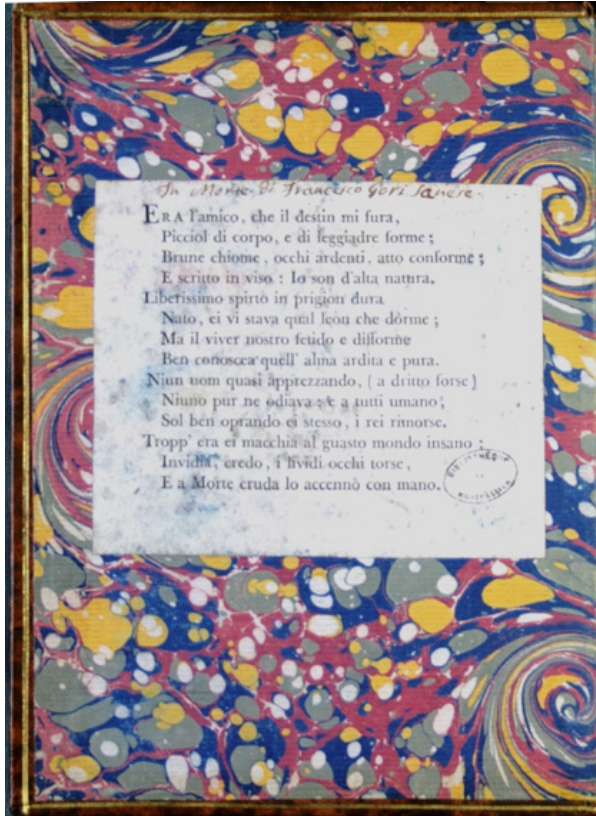 In Morte di Francesco Gori Sanese.
ERA l'amico, che il destin mi fura,
Picciol di corpo, e di leggiadre forme;
Brune chiome, occhi ardenti, atto conforme;
E scritto in viso: Io son d'alta natura.
Liberissimo spirto in prigion dura
Nato, ei vi stava qual leon che dorme;
Ma il viver nostro fetido e difforme
Ben conoscea quell' alma ardita e pura.
Niun uom quasi apprezzando, (a dritto forse)
Niuno pur ne odiava; e a tutti umano,
Sol ben oprando ei stesso, i rei rimorse.
Tropp' era ei macchia al guasto mondo insano:
Invidia, credo, i lividi occhi torse,
E a Morte cruda lo accennò con mano.
BIBLIOTHÈQUE